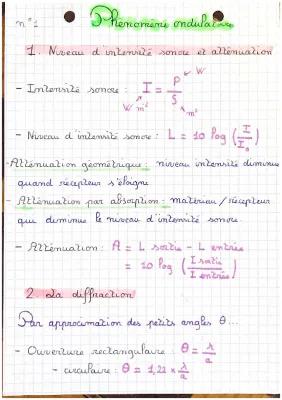 n°1 Phénomène ondulatoire
1. Niveau d'intensité sonore et atténuation
- Intensité sonore : I = P/S
W
W m⁻² m²
- Niveau d'intensité sonore : L = 10 log (I/I₀)
- Atténuation géométrique : niveau intensité diminue
quand récepteur s'éloigne
- Atténuation par absorption : matériau / récepteur
qui diminue le niveau d'intensité sonore.
- Atténuation : A = L sortie - L entrée
= 10 log (I sortie / I entrée)
2. La diffraction
Par approximation des petits angles θ...
- Ouverture rectangulaire : θ = λ/a
- circulaire : θ = 1,22 × λ/a